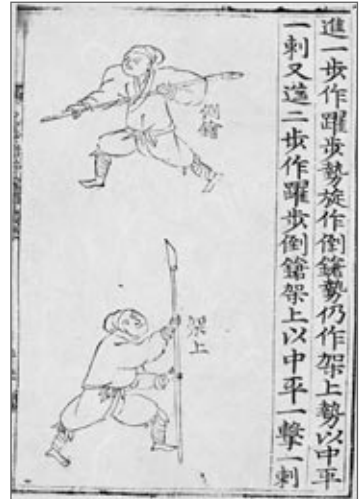 進一步作躍步勢旋作倒鎗勢仍作架上勢以中平
一刺又進二步作躍步倒鎗架上以中平一擊一刺
倒鎗
架上